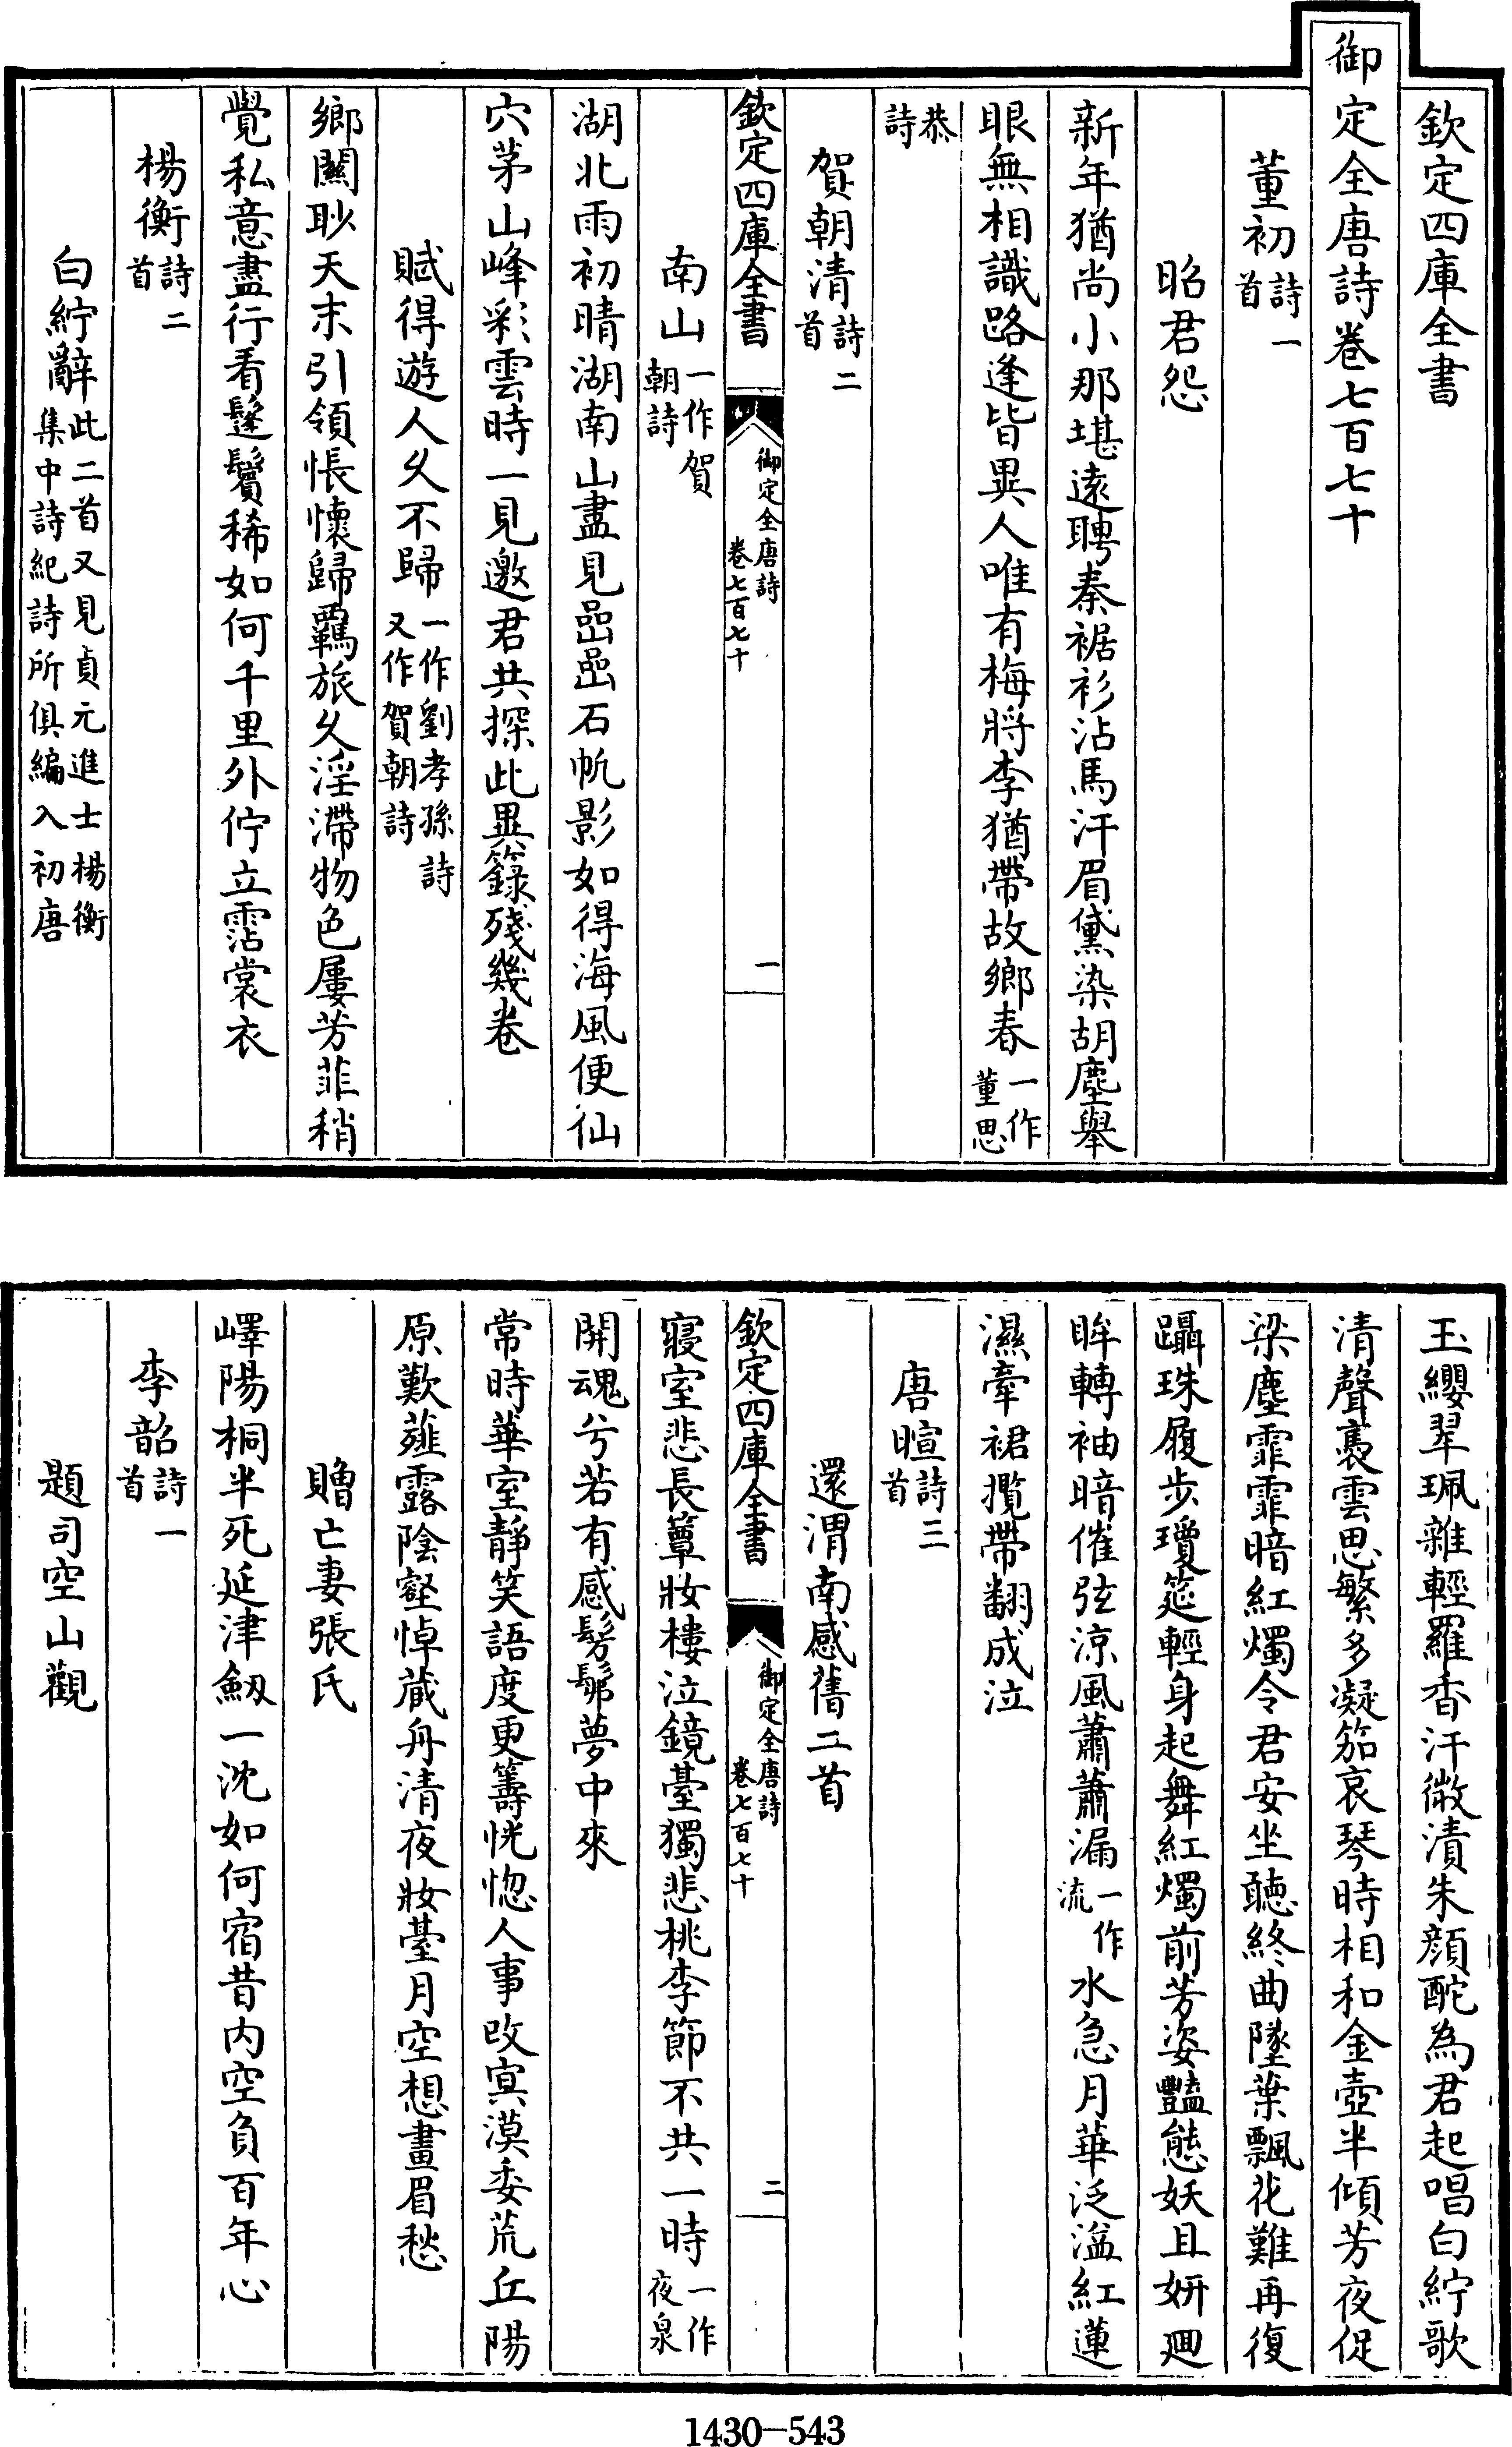 欽定四庫全書
御定全唐詩卷七百七十
董初詩一首
昭君怨
新年猶尚小那堪遠聘秦裾衫沾馬汗眉黛染胡塵舉
眼無相識路逢皆異人唯有梅將李猶帶故鄉春一作董思
恭詩
賀朝清詩二首
欽定四庫全書 御定全唐詩 卷七百七十 一
南山一作賀朝詩
湖北雨初晴湖南山盡見嵒嵒石帆影如得海風便仙
穴茅山峰彩雲時一見邀君共探此異籙殘幾卷
賦得遊人久不歸一作劉孝孫詩又作賀朝詩
鄉關眇天末引領悵懷歸羈旅久淫滯物色屢芳菲稍
覺私意盡行看鬢鬢稀如何千里外佇立霑裳衣
楊衡詩二首
白紵辭此二首又見貞元進士楊衡集中詩紀詩所俱編入初唐
玉纓翠珮雜輕羅香汗微漬朱顏酡為君起唱白紵歌
清聲裊雲思繁多凝笳哀琴時相和金壺半傾芳夜促
梁塵霏霏暗紅燭令君安坐聽終曲墜葉飄花難再復
躡珠履步瓊筵輕身起舞紅燭前芳姿豔態妖且妍迴
眸轉袖暗催弦涼風蕭蕭漏一作流水急月華泛溢紅蓮
濕牽裙攬帶翻成泣
唐暄詩三首
還渭南感舊二首
欽定四庫全書 御定全唐詩 卷七百七十 二
寢室悲長簟妝樓泣鏡臺獨悲桃李節不共一時一作夜泉
開魂兮若有感髣髴夢中來
常時華室靜笑語度更籌恍惚人事改冥漠委荒丘陽
原歎薤露陰壑悼藏舟清夜妝臺月空想畫眉愁
贈亡妻張氏
嶧陽桐半死延津劒一沈如何宿昔內空負百年心
李韶詩一首
題司空山觀
1430-543